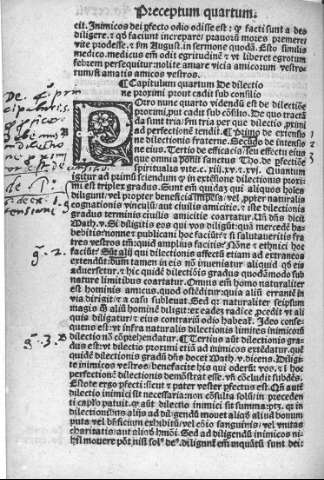 Preceptum quartum.
cit. Inimicos dei pfecto odio odisse est: q̃ facti sunt a des
diligere. ⁊ q̃ faciunt increpare: prauorũ mores premere:
vite prodesse. ⁊ sm̃ August. in sermone quodã. Esto similis
medico. medicus em̃ odit egritudinẽ ⁊ vt liberet egrotum
febrem persequitur. nolite amare vicia amicorum vestro
rum: si amatis amicos vestros.
¶ Capitulum quartum De dilectio
ne proximi prout cadit sub consilio
Porro nunc quarto videndũ est de dilectiõe
proximi, put cadit sub cõsilio. De quo tractã
da sunt tria: sm̃ tria per que dilectio primi
ad perfectionẽ tendit. ¶ Primo de extensio
ne dilectionis fraterne. Secũdo de intensio
ne eius. Tertio de efficacia seu effectu eius
que omnia ponit sanctus Tho. de pfectiõe
spiritualis vite. c. xiii. xv. ⁊ xvi. Quantum
igitur ad primũ sciendum q̃ in extẽsione dilectionis proxi
mi est triplex gradus. Sunt em̃ quidaȝ qui aliquos holes
diligunt: vel propter beneficia impensa: vel ppter naturalis
cognationis vinculũ: aut ciuilis amicitie. ⁊ iste dilectionis
gradus terminis ciuilis amicitie coartatur. Uñ dñs dicit
Math. v. Si diligitis eos qui vos diligũt: quã mercedẽ ha
bebitis: nonne ⁊ publicani hoc faciũt: ⁊ si salutaueritis fra
tres vestros tm̃: quid amplius facitis? Nõne ⁊ ethnici hoc
faciũt? Sũt alij qui dilectionis affectũ etiam ad extraneos
extendũt: dum tamen in eis nõ inueniatur aliquid qđ eis
aduersetur. ⁊ hic quidẽ dilectiõis gradus quodãmodo sub
nature limitibus coartatur. Omnis em̃ homo naturaliter
est hominis amicus. quod ostẽditur: quia aliũ errantẽ in
via dirigit: ⁊ a casu subleuat. Sed qr̃ naturaliter seipsum
magis q̃ aliũ hominẽ diligit: ex eadeȝ radice pcedit vt ali
quis diligatur: ⁊ eius contrariũ odio habeat̃. Ideo conse
quens est: vt infra naturalis dilectionis limites inimicorũ
dilectio nõ cõprehendatur. ¶ Tertius aũt dilectionis gra
dus est: vt dilectio proximi etiã ad inimicos extẽdatur. quẽ
quidẽ dilectionis gradũ dñs docet Math. v. dicens. Diligi
te inimicos vestros: benefacite his qui oderũt vos. ⁊ in hoc
perfectionẽ dilectionis demõstrat esse. vñ cõcludit subdẽs.
Estote ergo pfecti: sicut ⁊ pater vester pfectus est. Qñ aũt
dilectio inimici sit necessaria: nõ cõsulta solũ: in preceden
ti caplo patuit. q̃ aũt dilectio inimici sit summa: ptȝ. qr̃ in
dilectionibus alijs ad diligendũ mouet aliqđ aliud bonum
puta vel bñficium exhibitũ: vel cõio sanguinis: vel vnitas
charitatis: aut aliqđ hmõi. Sed ad diligendũ inimicos ni
hil mouere põt nisi sol⁹ de⁹. diligunt̃ em̃ inquãtũ sunt dei: